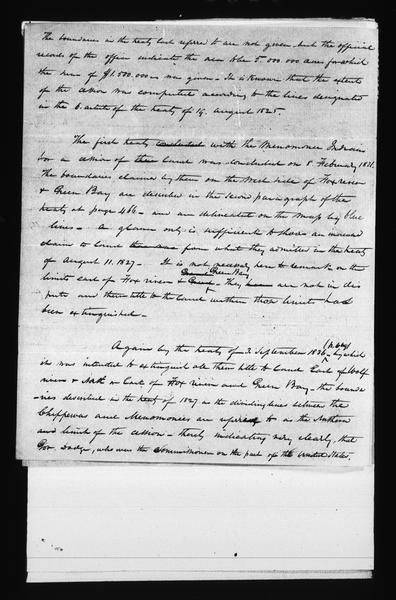 The boundaries in the treaty last referred to are not given but the official
records of the office indicate the area to be 5.000.000 acres for which
the sum of $1.500.000 was given - It is known that the extent
of the cession was computed according to the lines designated
in the 6 article of the treaty of 19. August 1825.
The first treaty concluded with the Menomonee Indians
for a cession of their land was concluded on 8 February 1831.
The boundaries claimed by them on the West side of Fox river
& Green Bay are described in the second paragraph of the
treaty at page 466 - and are delineated on the map by blue
lines - A glance only is sufficient to show an increased
claim to land from what they admitted in the treaty
of August 11. 1827 - It is not necessary here to remark on the
Green Bay
limits east of Fox river & - They are not in dis
pute and their title to the land within these limits has
been extinguished -
(p. 669)
Again by the treaty of 3. September 1836 - by which
it was intended to extinguish all their title to land East of Wolf
river & North W East of Fox river and Green Bay - the bounda
-ries described in the treaty of 1827 as the dividing lines between the
Chippewas and Menomonies are referred to as the Northern
limit of the cession - thereby indicating very clearly, that
Gov. Dodge, who was the Commissioner on the part of the United States,